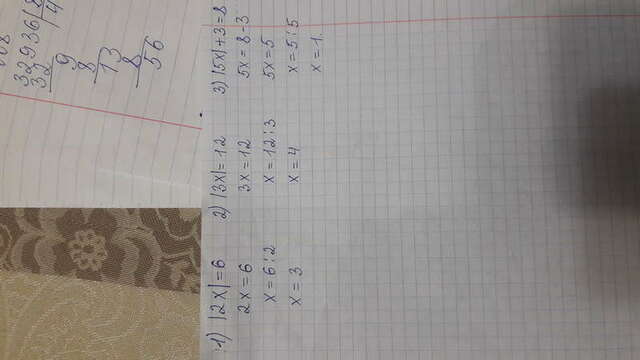 008
32936 8
32 4
9
8
13
8
56
1) |2x|=6 2) |3x|=12 3) |5x|+3=8
2x=6 3x=12 5x=8-3
x=6:2 x=12:3 5x=5
x=3 x=4 x=5:5
x=1.